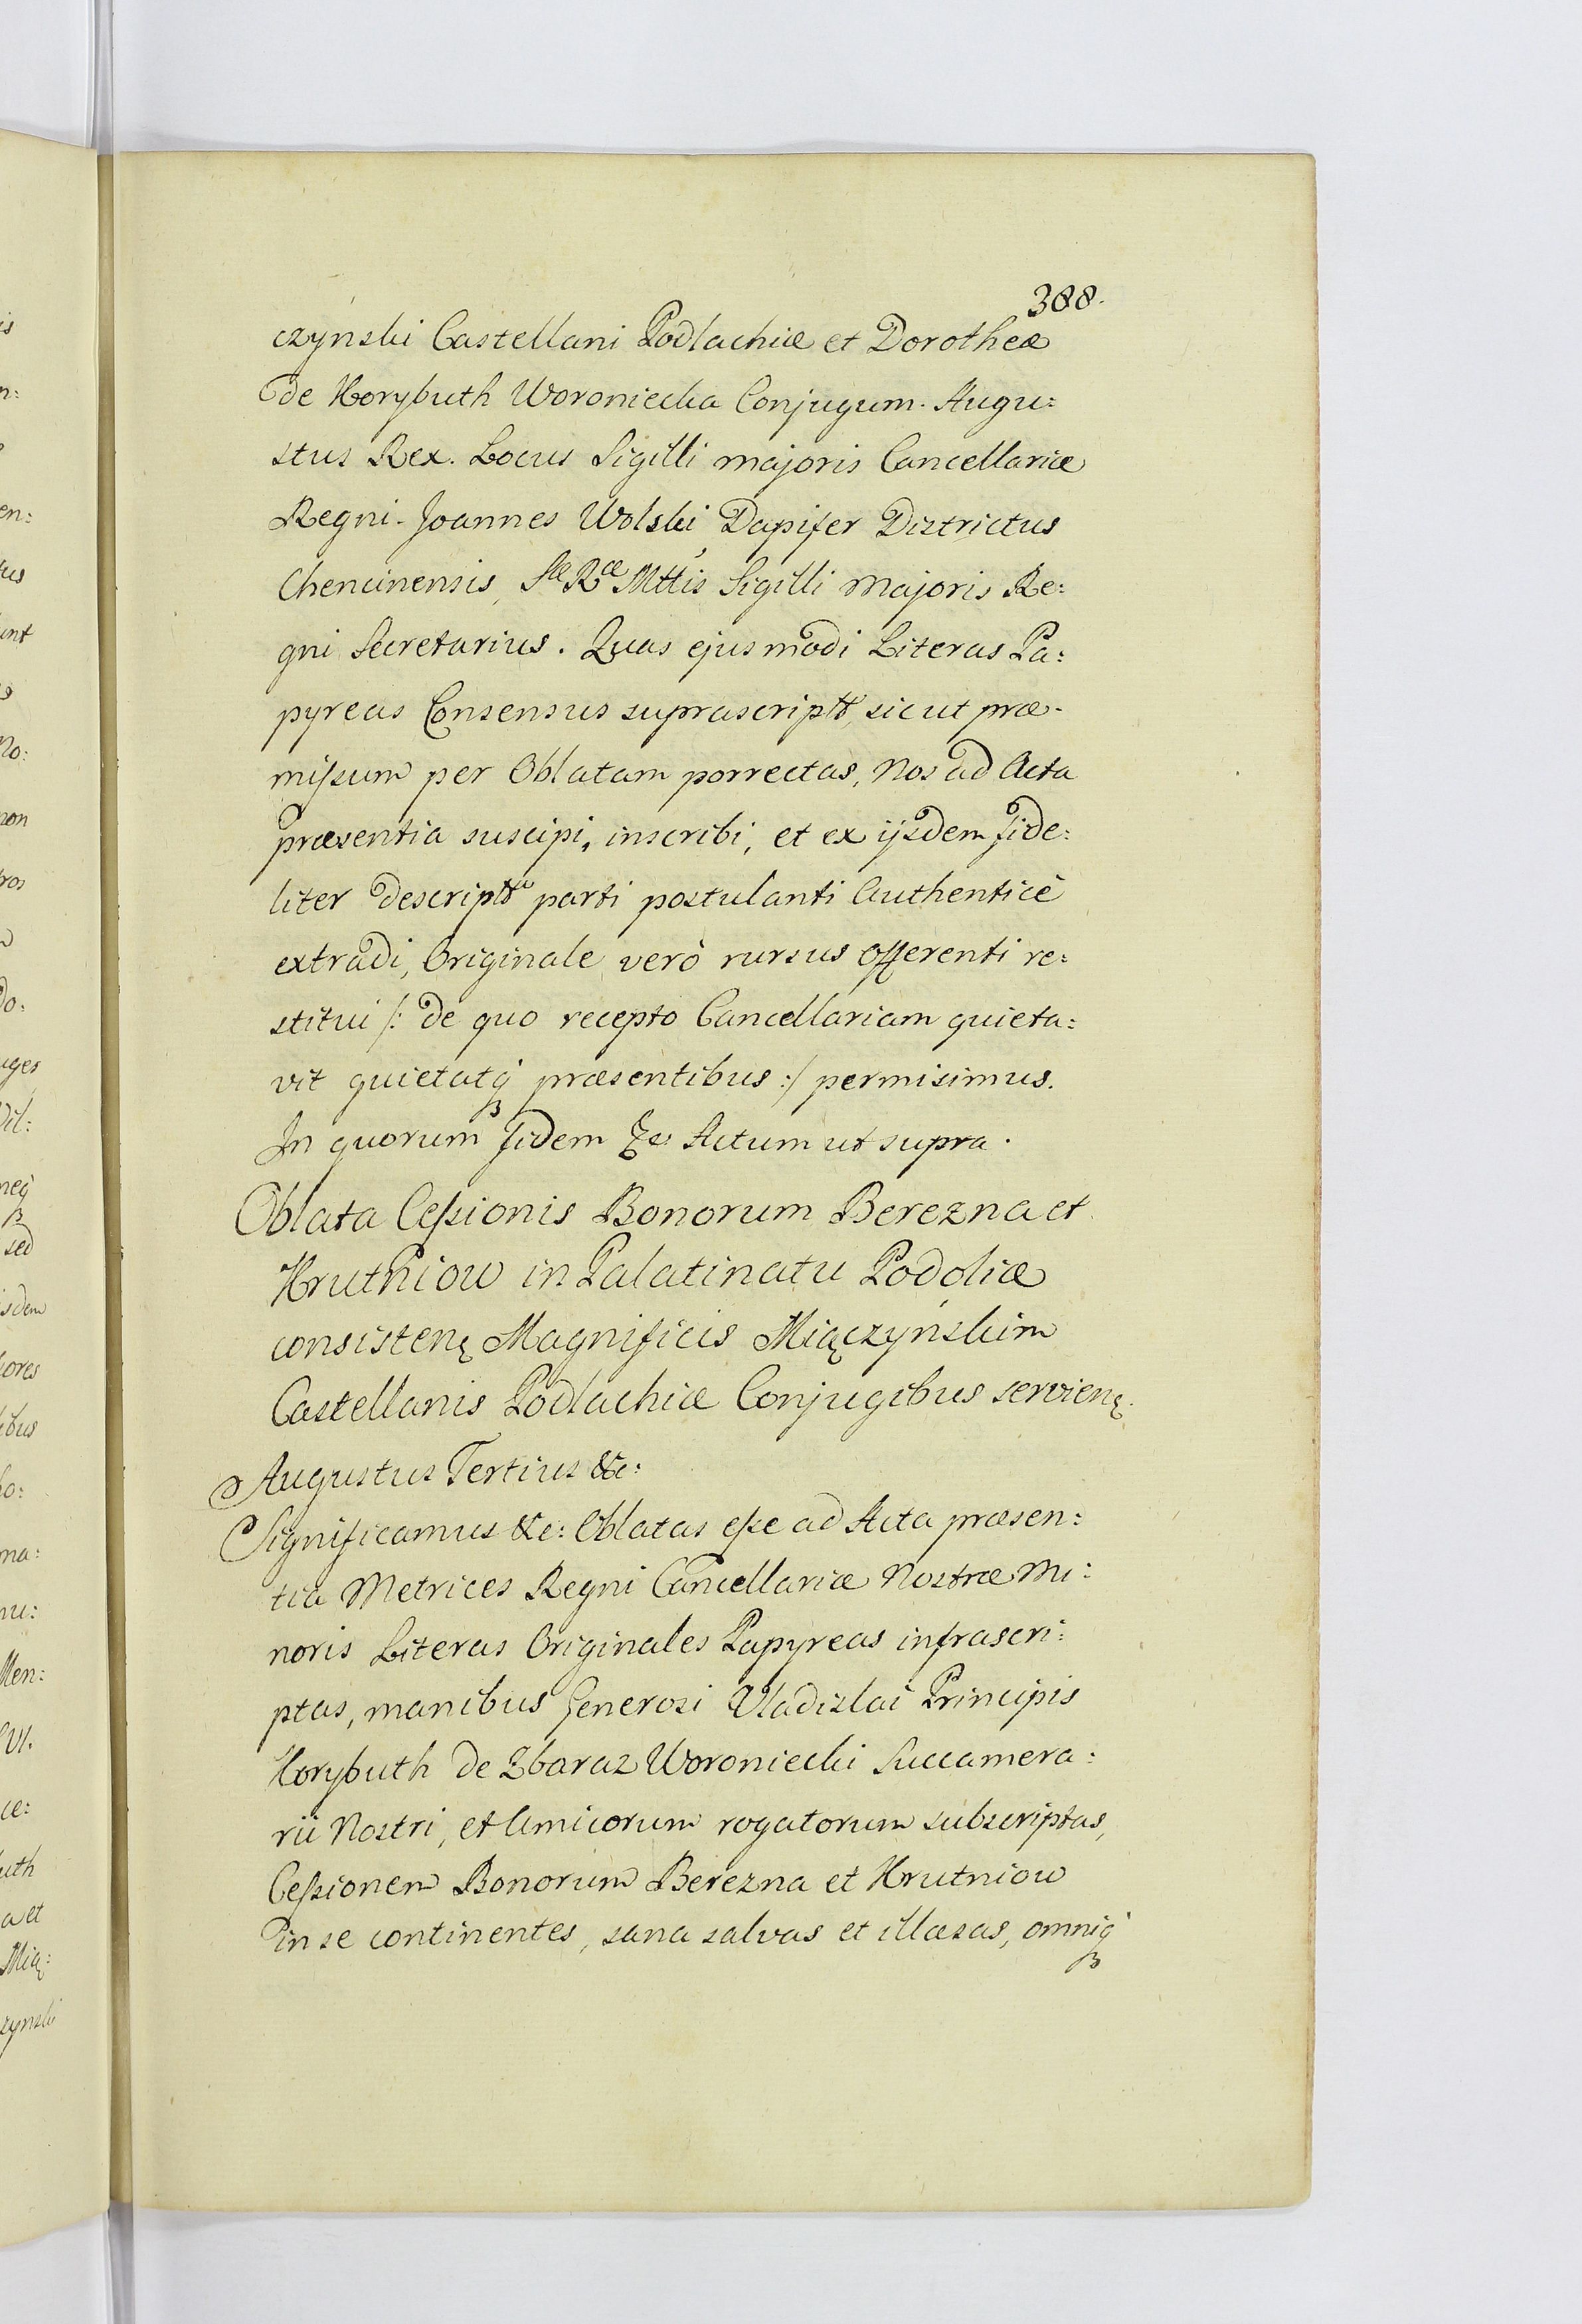 388.
czynski Castellani Podlachiæ et Dorotheæ
de Korybuth Woroniecka Conjugum. Augu:
stus Rex. Locus Sigilli majoris Cancellariæ
Regni. Joannes Wolski Dapifer Districtus
Chencinensis, Sæ Ræ Mttis Sigilli Majoris Re:
gni Secretarius. Quas ejusmodi Literas Pa:
pyreas Consensus suprascriptt, sicut præ-
missum per Oblatam porrectas, Nos ad Acta
præsentia suscipi, inscribi, et ex ijsdem fide:
liter descriptt parti postulanti Authenticè
extradi, Originale verò rursus Offerenti re:
stitui /: de quo recepto Cancellariam quieta:
vit quietatq præsentibus :/ permisimus.
In quorum fidem &c Actum ut supra.
Oblata Cessionis Bonorum Berezna et
Krutniow in Palatinatu Podoliæ
consisten: Magnificis Miączyńskim
Castellanis Podlachiæ Conjugibus servien:
Augustus Tertius &c:
Significamus &c: Oblatas esse ad Acta præsen:
tia Metrices Regni Cancellariæ Nostræ Mi:
noris Literas Originales Papyreas infrascri:
ptas, manibus Generosi Vladislai Principis
Korybuth de Zbaraz Woroniecki Succamera:
rii Nostri, et Amicorum rogatorum subscriptas,
Cessionem Bonorum Berezna et Krutniow
in se continentes, sana salvas et illæsas, omniq